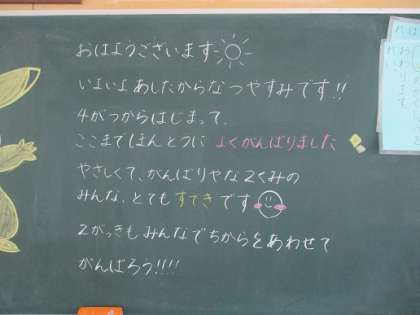 おはようございます
いよいよ あしたからなつやすみです!!
4がつからはじまって、
ここまでほんとうに よくがんばりました
やさしくて、がんばりやな2くみの
みんな、とても すてきです
2がっきも みんなでちからをあわせて
がんばろう!!!!